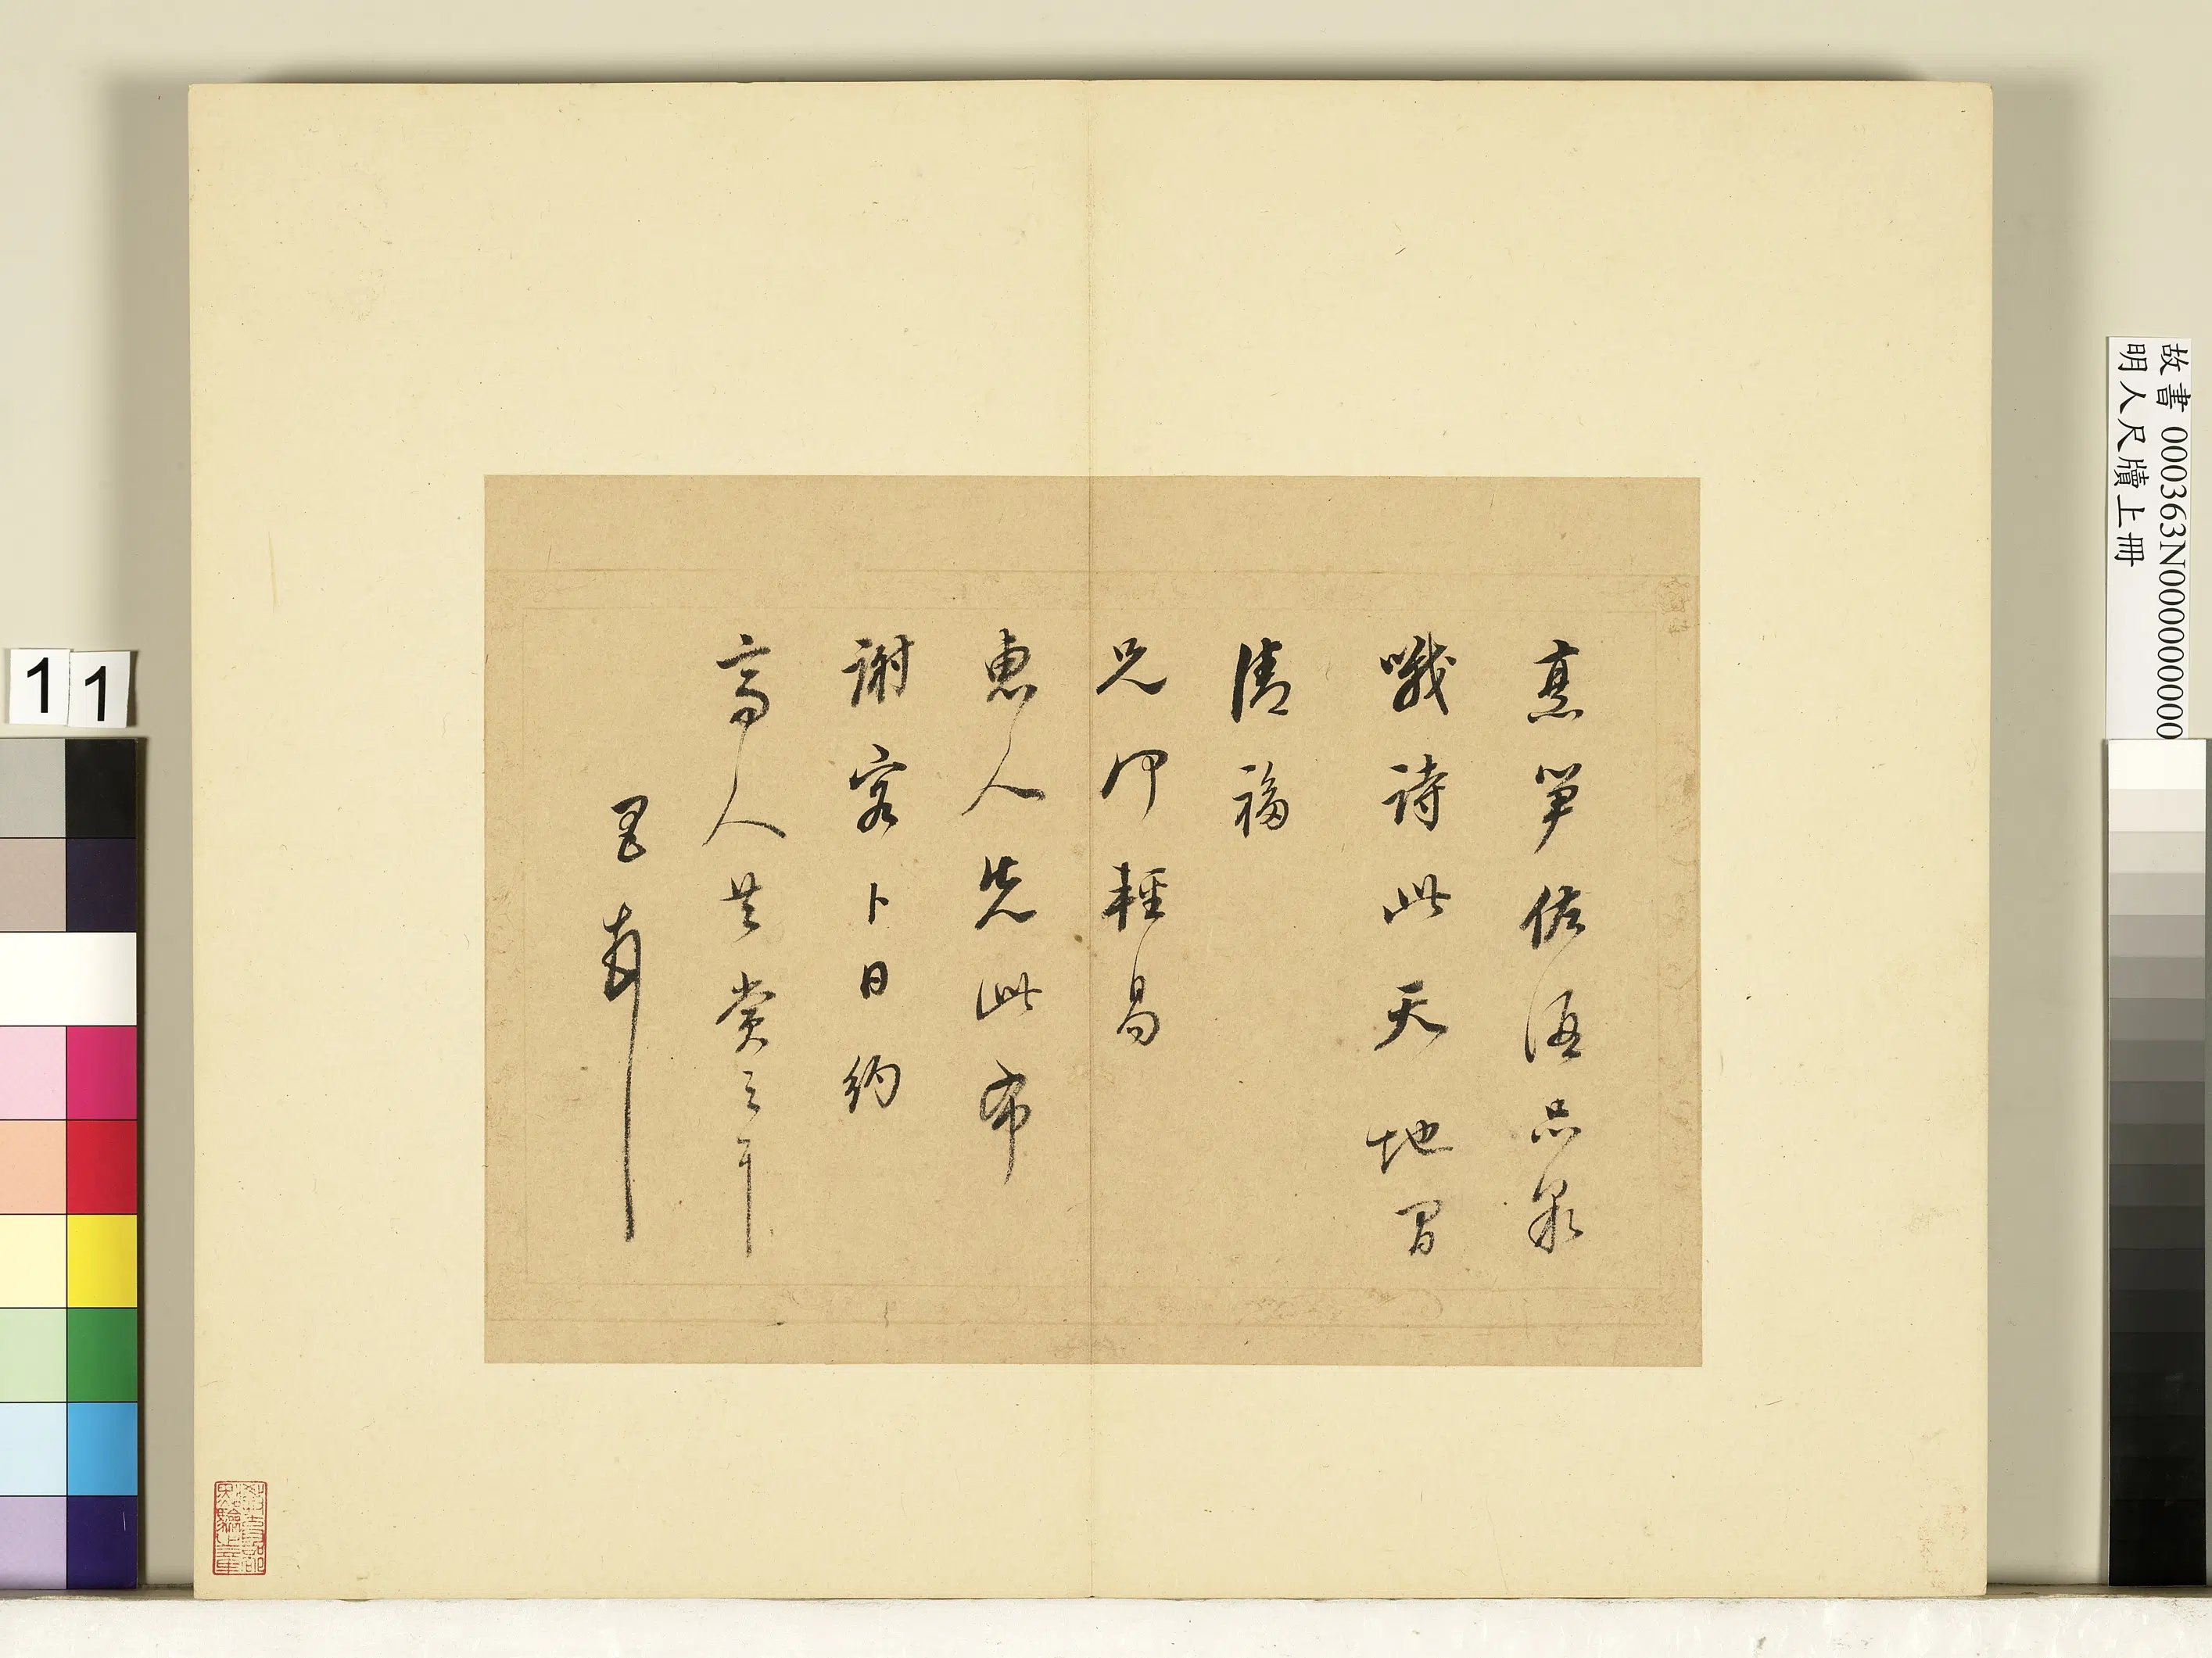 烹笋佐酒品泉
哦詩此天地間
清福
兄何輕易
惠人先此布
謝容卜日約
高人共賞之耳
故書 000363N000000000
明人尺牘上冊
1 1